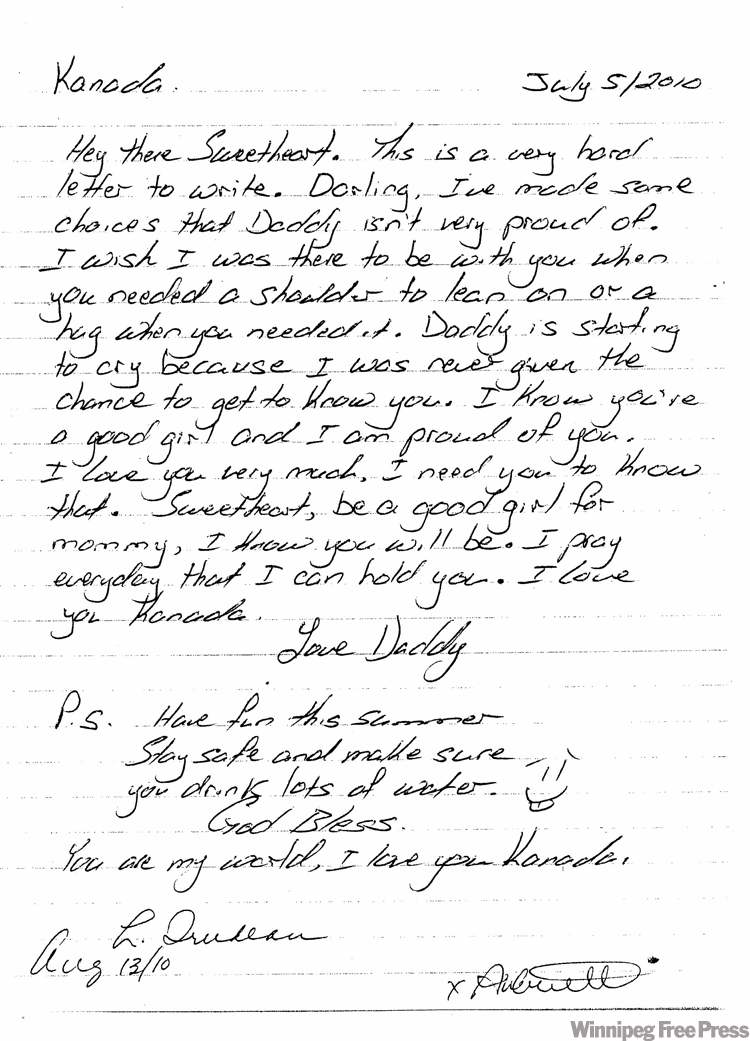 Kanada.
July 5/2010
Hey there Sweetheart. This is a very hard
letter to write. Darling, I've made some
choices that Daddy isn't very proud of.
I wish I was there to be with you when
you needed a shoulder to lean on or a
hug when you needed it. Daddy is starting
to cry because I was never given the
chance to get to know you. I know you're
a good girl and I am proud of you.
I love you very much, I need you to know
that. Sweetheart, be a good girl for
mommy, I know you will be. I pray
everyday that I can hold you. I love
you Kanada.
Love Daddy
P.S. Have fun this summer
Stay safe and make sure
you drink lots of water.
God Bless.
You are my world, I love you Kanada.
L. Trudeau
Aug 13/10
x
Winnipeg Free Press